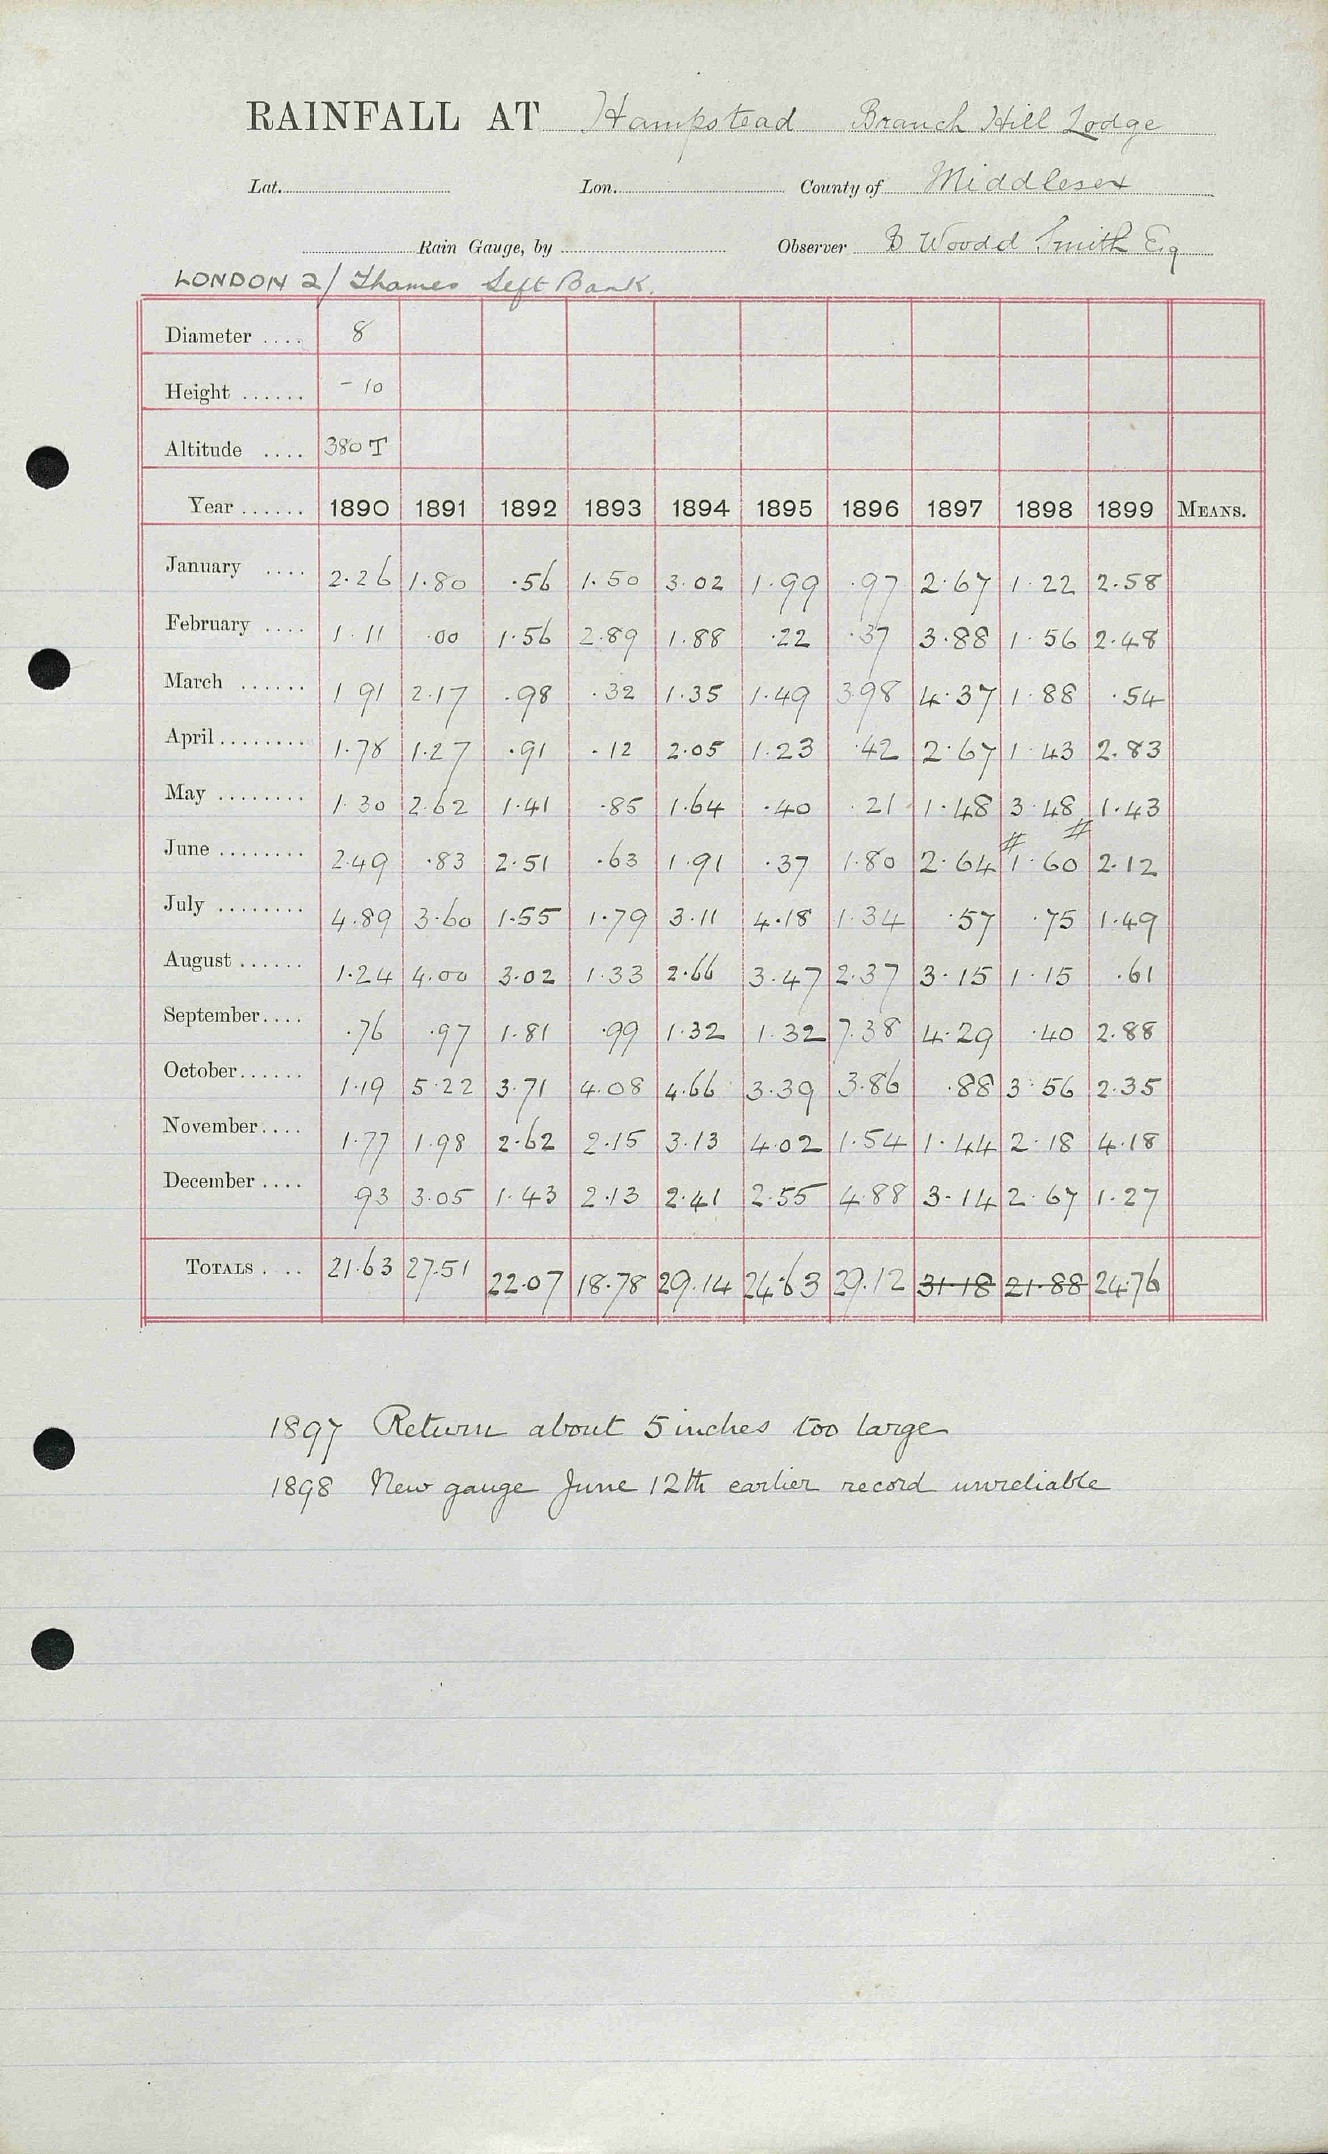 RAINFALL AT Hampstead Branch Hill Lodge
Lat. Lon. County of Middlesex
Rain Gauge, by Observer B Woodd Smith Esq
LONDON 2/ Thames Left Bank.
Diameter .... 8
Height ...... - 10
Altitude .... 380 T
Year ...... 1890 1891 1892 1893 1894 1895 1896 1897 1898 1899 MEANS.
January .... 2.26 1.80 .56 1.50 3.02 1.99 .97 2.67 1.22 2.58
February .... 1.11 .00 1.56 2.89 1.88 .22 .37 3.88 1.56 2.48
March ...... 1 91 2.17 .98 .32 1.35 1.49 3.98 4.37 1.88 .54
April ........ 1.78 1.27 .91 .12 2.05 1.23 .42 2.67 1.43 2.83
May ........ 1.30 2.62 1.41 .85 1.64 .40 .21 1.48 3.48 1.43
June ........ 2.49 .83 2.51 .63 1.91 .37 1.80 2.64 #1.60# 2.12
July ........ 4.89 3.60 1.55 1.79 3.11 4.18 1.34 .57 .75 1.49
August ...... 1.24 4.00 3.02 1.33 2.66 3.47 2.37 3.15 1.15 .61
September.... .76 .97 1.81 .99 1.32 1.32 7.38 4.29 .40 2.88
October...... 1.19 5.22 3.71 4.08 4.66 3.39 3.86 .88 3.56 2.35
November.... 1.77 1.98 2.62 2.15 3.13 4.02 1.54 1.44 2.18 4.18
December .... .93 3.05 1.43 2.13 2.41 2.55 4.88 3.14 2.67 1.27
TOTALS . .. 21.63 27.51 22.07 18.78 29.14 24.63 29.12 31.18 21.88 24.76
1897 Return about 5 inches too large
1898 New gauge June 12th earlier record unreliable